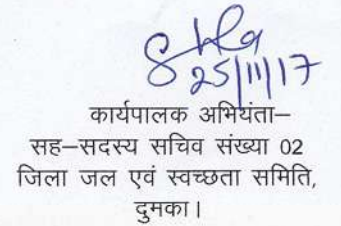 25/11/17
कार्यपालक अभियंता–
सह–सदस्य सचिव संख्या 02
जिला जल एवं स्वच्छता समिति,
दुमका।